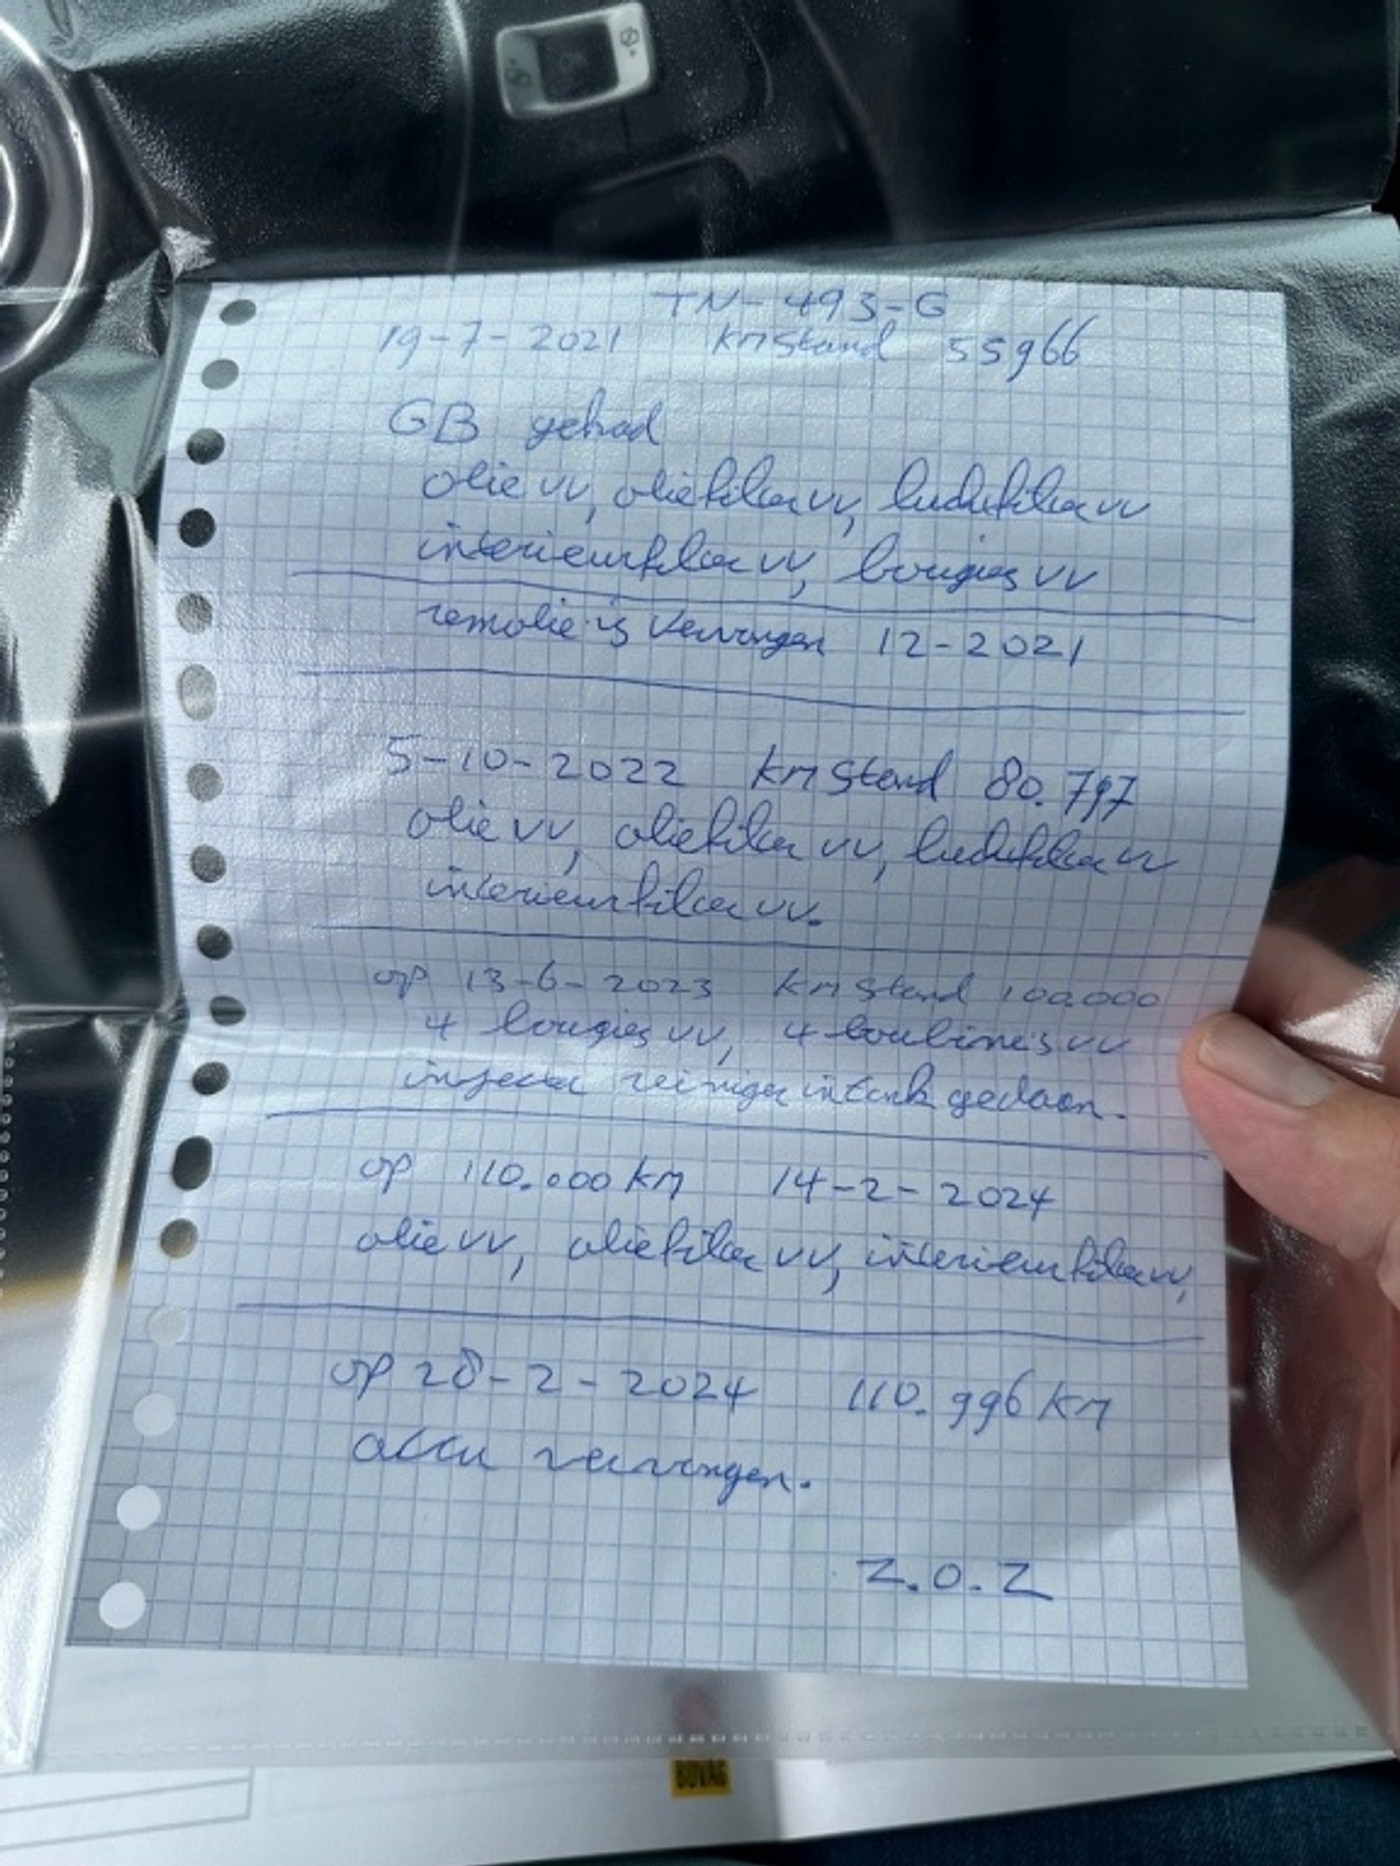 TN-493-G
19-7-2021 KMStand 55966
GB gehad
olie vv, oliefilter vv, luchtfilter vv
interieurfilter vv, bougies vv
remolie is vervangen 12-2021
5-10-2022 KM Stand 80.797
olie vv, oliefilter vv, luchtfilter vv
interieurfilter vv.
op 13-6-2023 KM Stand 100.000
4 bougies vv, 4 boubines vv
injector reiniger in tank gedaan.
op 110.000 KM 14-2-2024
olie vv, oliefilter vv, interieurfilter vv,
op 28-2-2024 110.996 KM
accu vervangen.
Z.O.Z
BOVAG